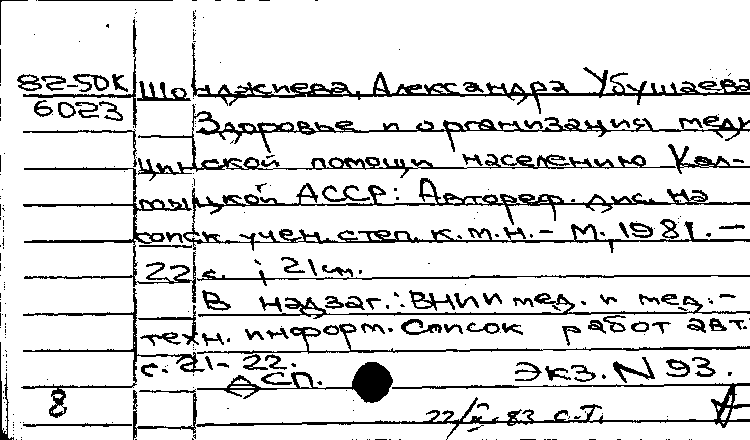 82-5DK Шонджиева, Александра Убушаевна
6023
Здоровье и организация меди-
цинской помощи населению Кал-
мыцкой АССР: Автореф. дис. на
соиск. учен. степ. к.м.н. - М., 1981. -
22 с. ; 21 см.
В надзаг.: ВНИИ мед. и мед.-
техн. информ. Список работ авт.:
с. 21-22.
СП. Экз. N 93.
8 22/X.83 С.Т.